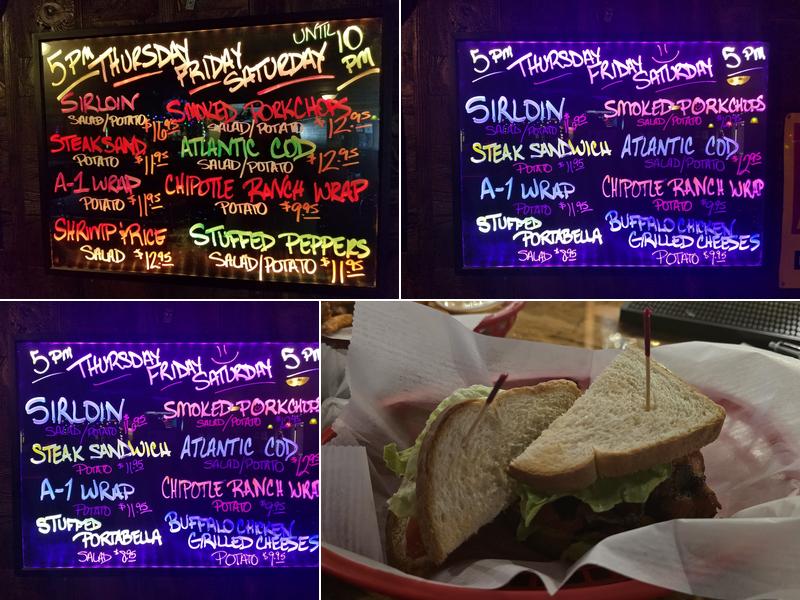 5PM THURSDAY FRIDAY SATURDAY UNTIL 10 PM
SIRLOIN
SALAD/POTATO $16.95
SMOKED PORKCHOPS
SALAD/POTATO $12.95
STEAK SAND
POTATO $11.95
ATLANTIC COD
SALAD/POTATO $12.95
A-1 WRAP
POTATO $11.95
CHIPOTLE RANCH WRAP
POTATO $9.95
SHRIMP & RICE
SALAD $12.95
STUFFED PEPPERS
SALAD/POTATO $11.95
5PM THURSDAY FRIDAY SATURDAY 5PM
SIRLOIN
SALAD/POTATO
SMOKED PORKCHOPS
SALAD/POTATO
STEAK SANDWICH
POTATO $11.95
ATLANTIC COD
SALAD/POTATO $12.95
A-1 WRAP
POTATO $11.95
CHIPOTLE RANCH WRAP
POTATO $9.95
STUFFED PORTABELLA
SALAD $8.95
BUFFALO CHICKEN GRILLED CHEESES
POTATO $9.95
5PM THURSDAY FRIDAY SATURDAY 5PM
SIRLOIN
SALAD/POTATO
SMOKED PORKCHOPS
SALAD/POTATO
STEAK SANDWICH
POTATO $11.95
ATLANTIC COD
SALAD/POTATO
A-1 WRAP
POTATO $11.95
CHIPOTLE RANCH WRA
POTATO $9.95
STUFFED PORTABELLA
SALAD $8.95
BUFFALO CHICKEN GRILLED CHEESES
POTATO $9.95